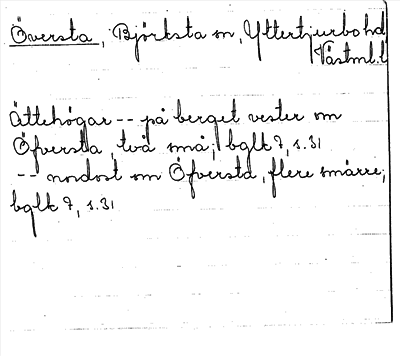 Översta, Björksta sn, Yttertjurbo hd
Västml. l
Ättehögar -- på berget vester om
Öfversta, två små; bglk 7, s. 31
-- nordost om Öfversta, flere smärre;
bglk 7, s. 31